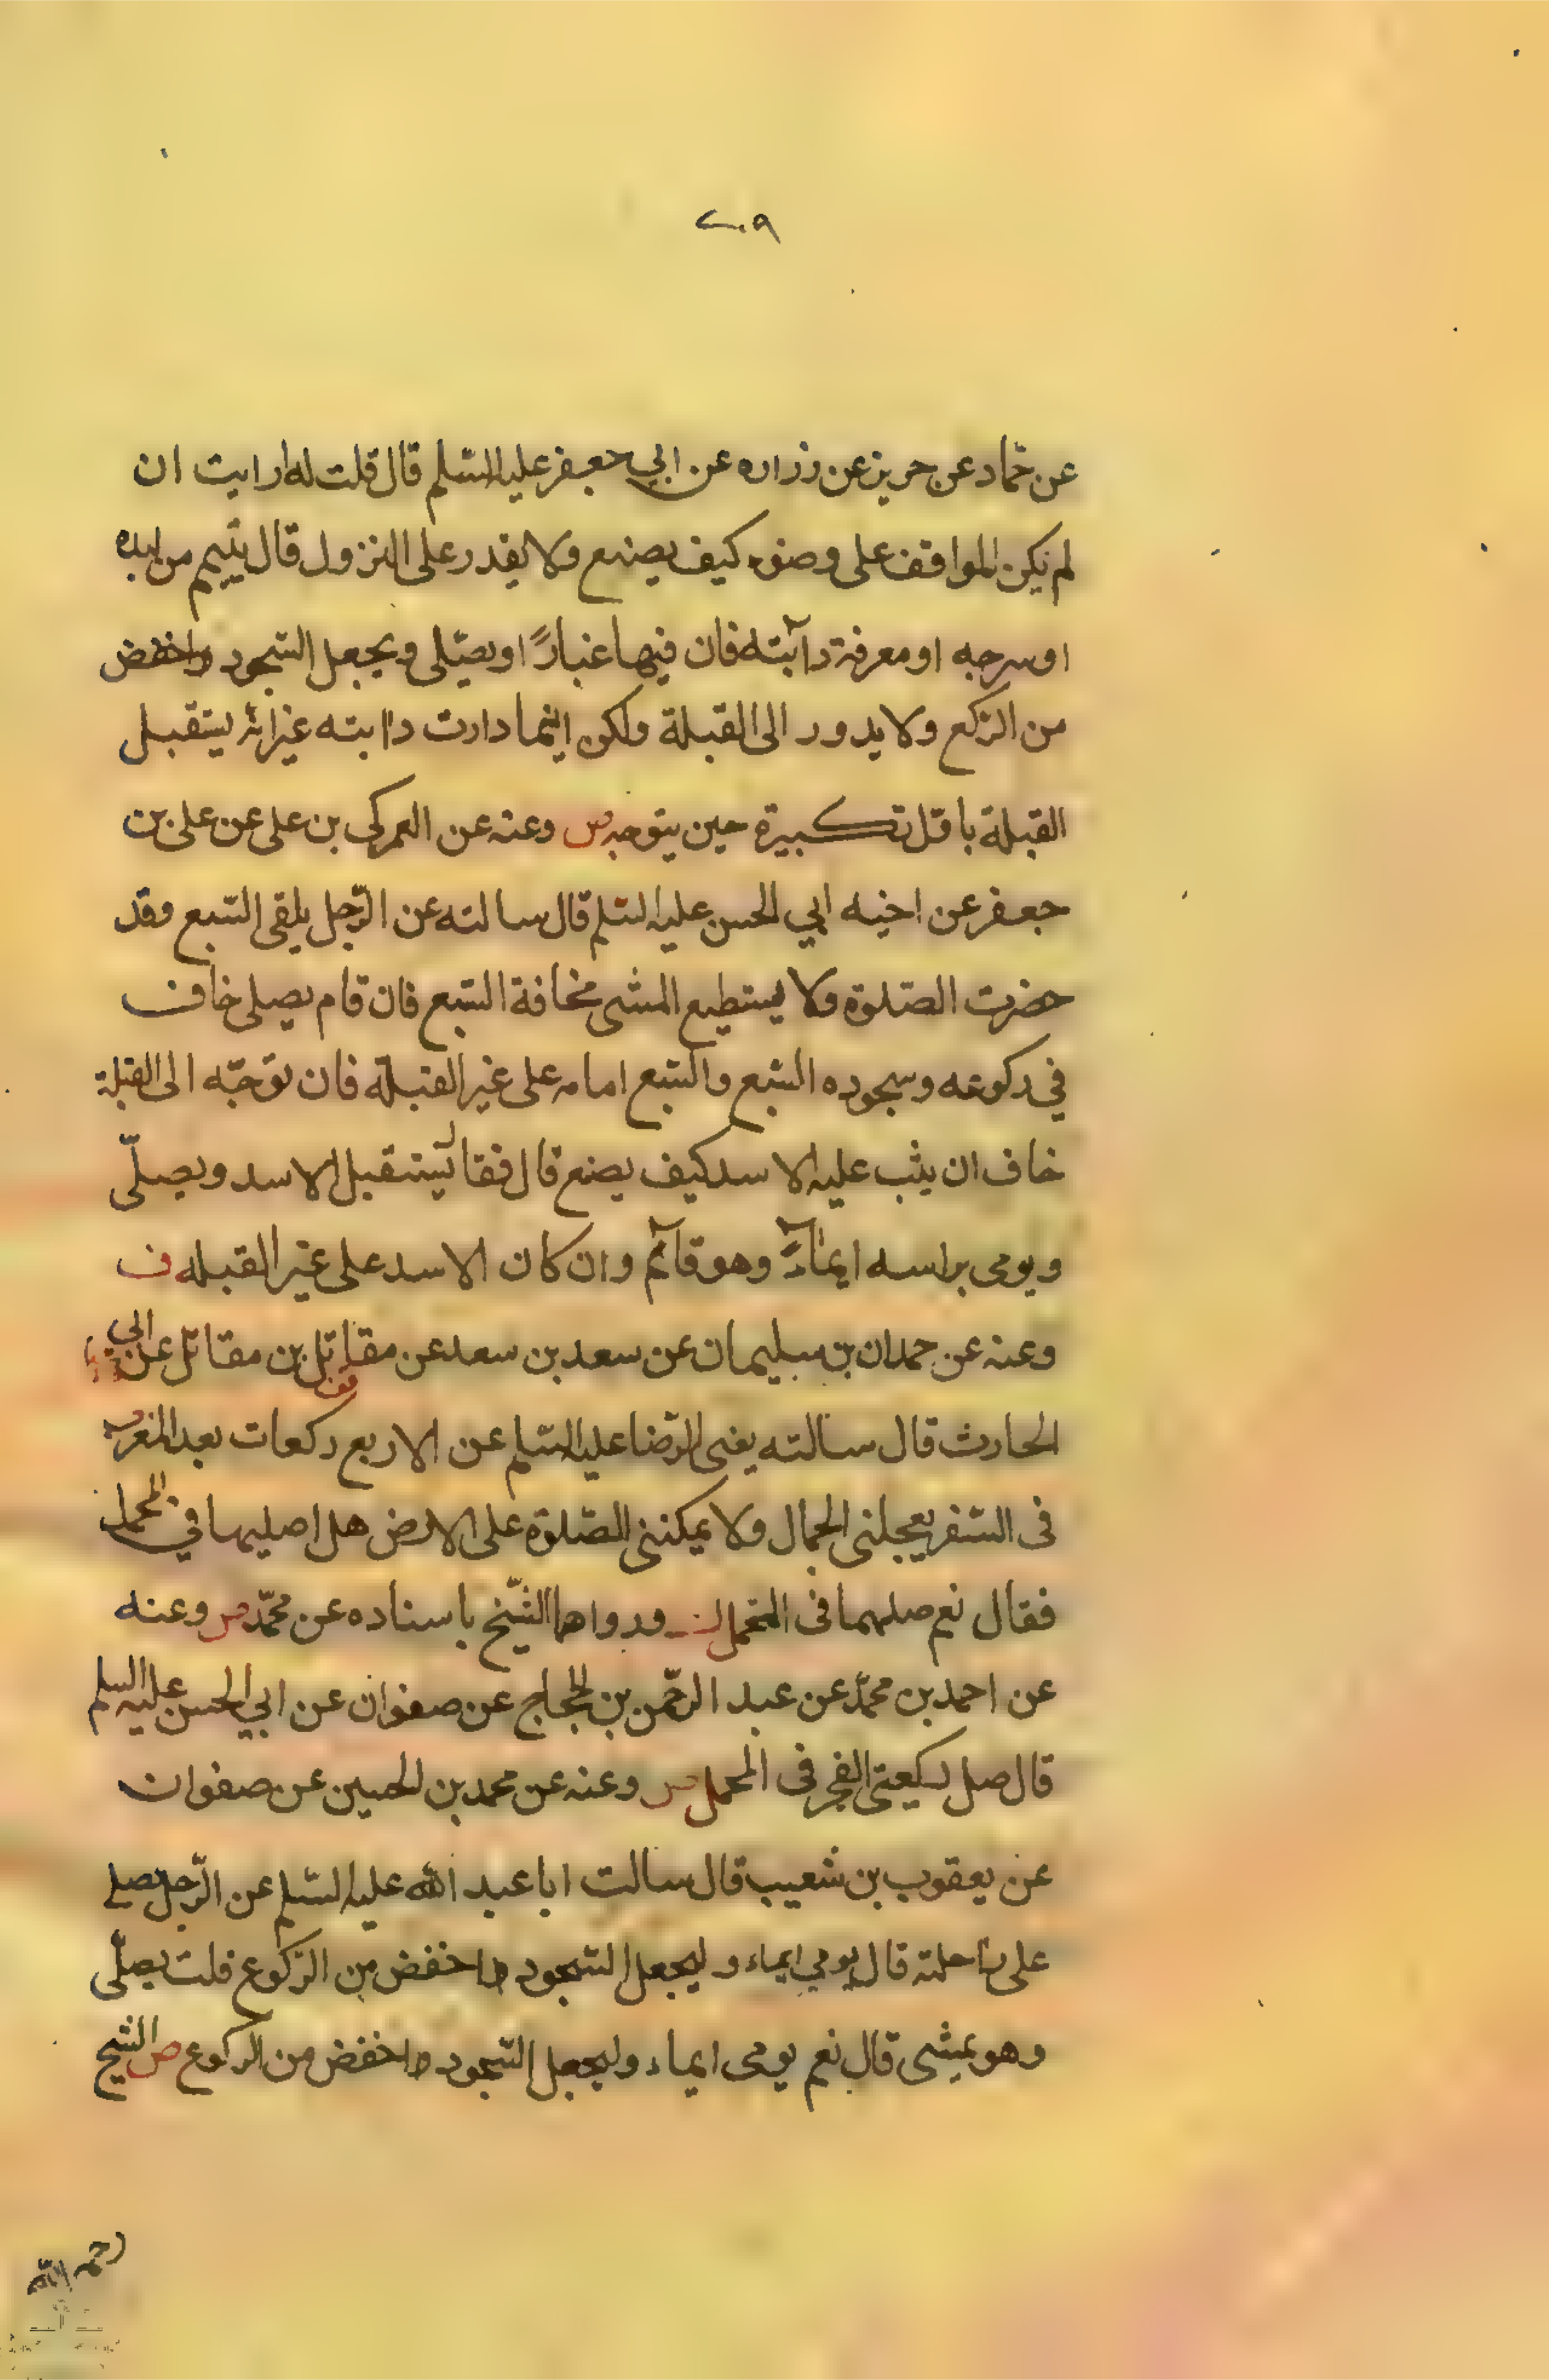 ٢٠٩
عن حمّاد عن حريز عن زراره عن ابي جعفر عليه السّلم قال قلت له ارايت ان
لم يكن المواقف على وضوء كيف يصنع ولا يقدر على النزول قال يتيمم من لبده
او سرجه او معرفة دآبّته فان فيها غبارًا ويصلّى ويجعل السّجود اخفض
من الرّكوع ولا يدور الى القبلة ولكن اينما دارت دابته غير انّه يستقبل
القبلة باوّل تكبيرة حين يتوجه وعنه عن العمركى بن على عن على بن
جعفر عن اخيه ابي الحسن عليه السّلم قال سالته عن الرّجل يلقى السّبع وقد
حضرت الصّلوة ولا يستطيع المشى مخافة السّبع فان قام يصلى خاف
في ركوعه وسجوده السّبع والسّبع امامه على غير القبلة فان توجّه الى القبلة
خاف ان يثب عليه الاسد كيف يصنع قال فقال يستقبل الاسد ويصلّى
ويومى براسه ايمآءً وهو قآئم وان كان الاسد على غير القبله ف
وعنه عن حمدان بن سليمان عن سعد بن سعد عن مقاتل بن مقاتل عن ابي
الحارث قال سالته يعنى الرّضا عليه السّلم عن الاربع ركعات بعد المغرب
فى السّفر يعجلنى الجمال ولا يمكننى الصّلوة على الارض هل اصليها في المحمل
فقال نعم صلهما فى المحمل ورواهما الشّيخ باسناده عن محمّد وعنه
عن احمد بن محمّد عن عبد الرّحمن بن الحجاج عن صفوان عن ابي الحسن عليه السلم
قال صل ركعتى الفجر فى المحمل وعنه عن محمد بن الحسين عن صفوان
عن يعقوب بن شعيب قال سالت ابا عبد الله عليه السّلم عن الرّجل يصلى
على راحلته قال يومي ايماء وليجعل السّجود اخفض من الرّكوع قلت يصلّى
وهو يمشى قال نعم يومى ايماء وليجعل السّجود اخفض من الركوع ص الشيخ
رحمه الله